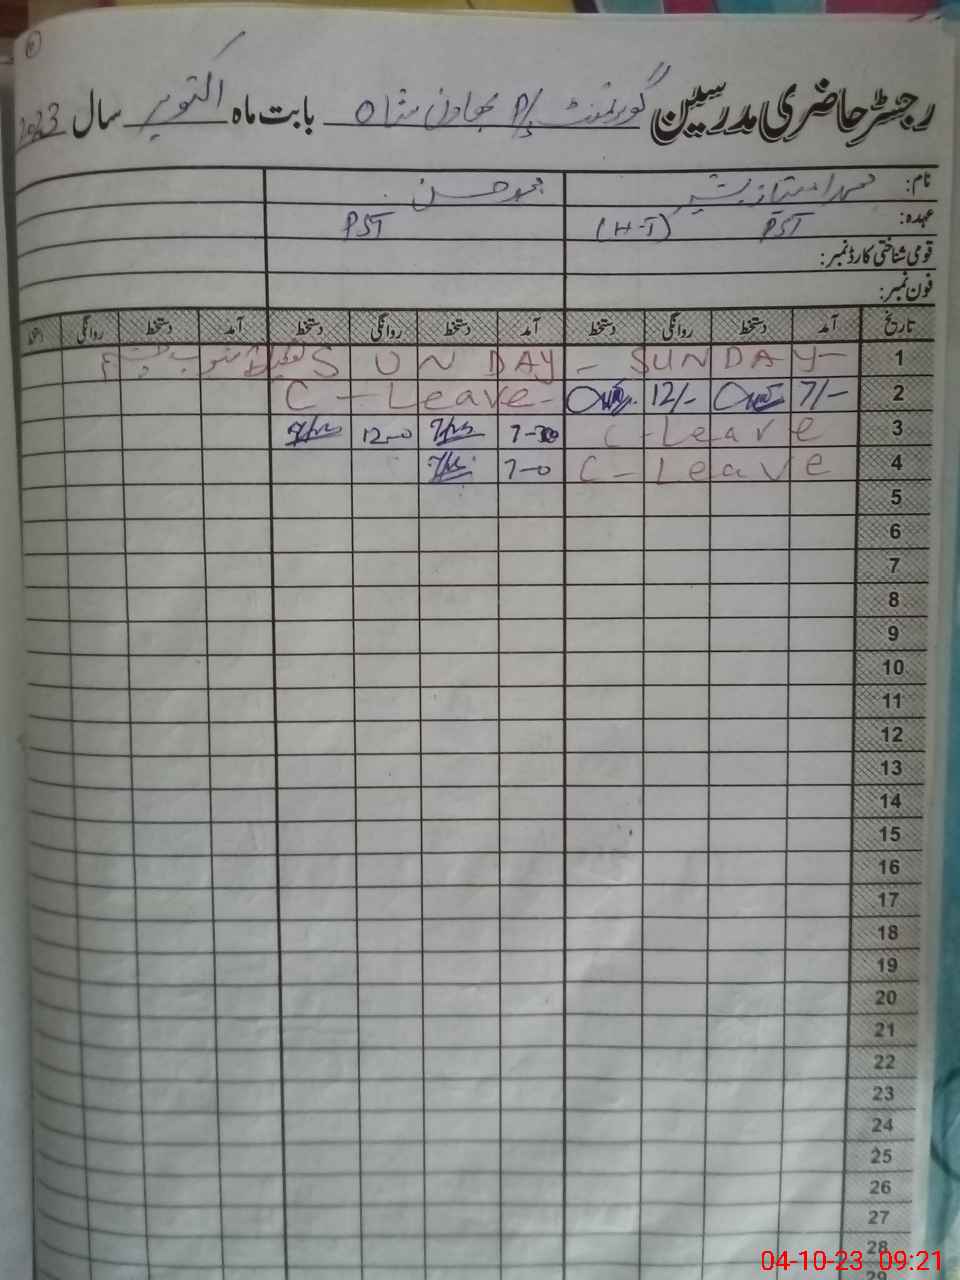 رجسٹر حاضری مدرسین گورنمنٹ P/ بھاون شاہ بابت ماہ اکتوبر سال 2023
نام:
عہدہ: PST (H-T) PST
قومی شناختی کارڈ نمبر:
فون نمبر:
تاریخ آمد دستخط روانگی دستخط آمد دستخط روانگی دستخط آمد دستخط روانگی دستخط
1 SUNDAY - SUNDAY -
2 7/- 12/- C - Leave -
3 C - Leave 7-30 12-0
4 C - Leave 7-0
5
6
7
8
9
10
11
12
13
14
15
16
17
18
19
20
21
22
23
24
25
26
27
28
29
04-10-23 09:21